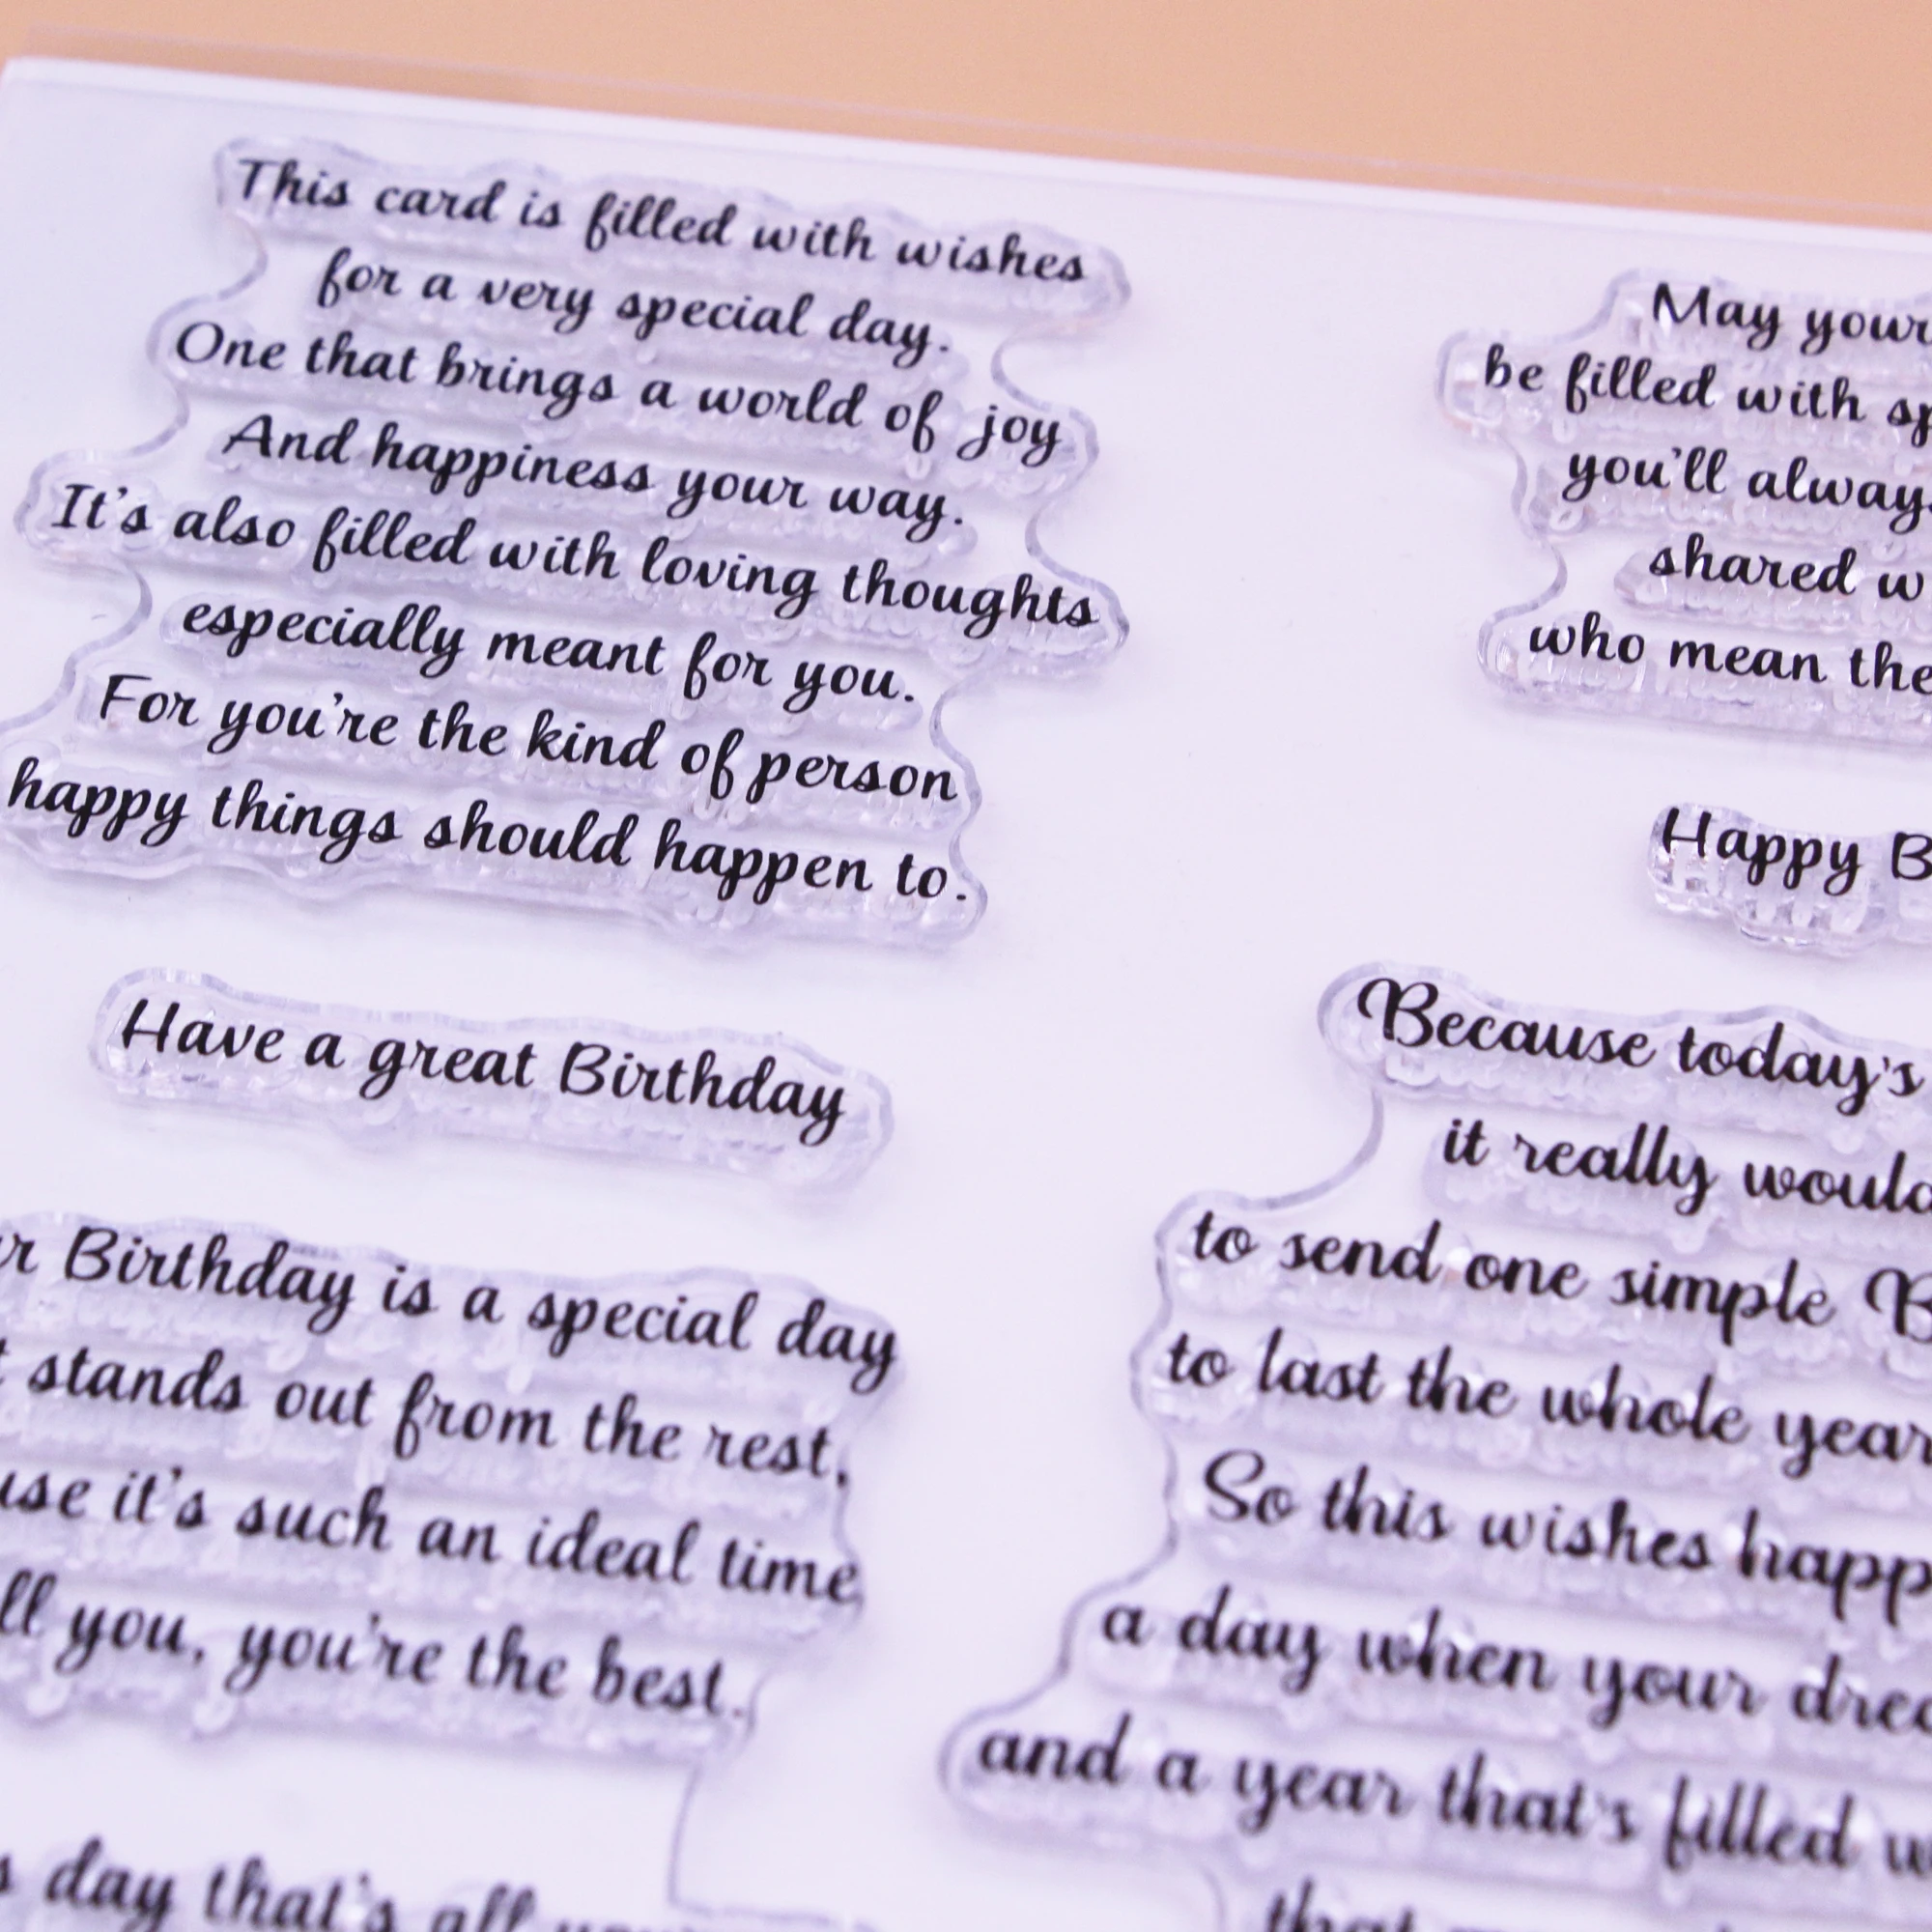 This card is filled with wishes
for a very special day.
One that brings a world of joy
And happiness your way.
It's also filled with loving thoughts
especially meant for you.
For you're the kind of person
happy things should happen to.
Have a great Birthday
Birthday is a special day
stands out from the rest,
it's such an ideal time
you, you're the best.
day that's all
May your
be filled with
you'll always
shared
who mean the
Happy
Because today's
it really would
to send one simple
to last the whole year
So this wishes
a day when your
and a year that's filled
that